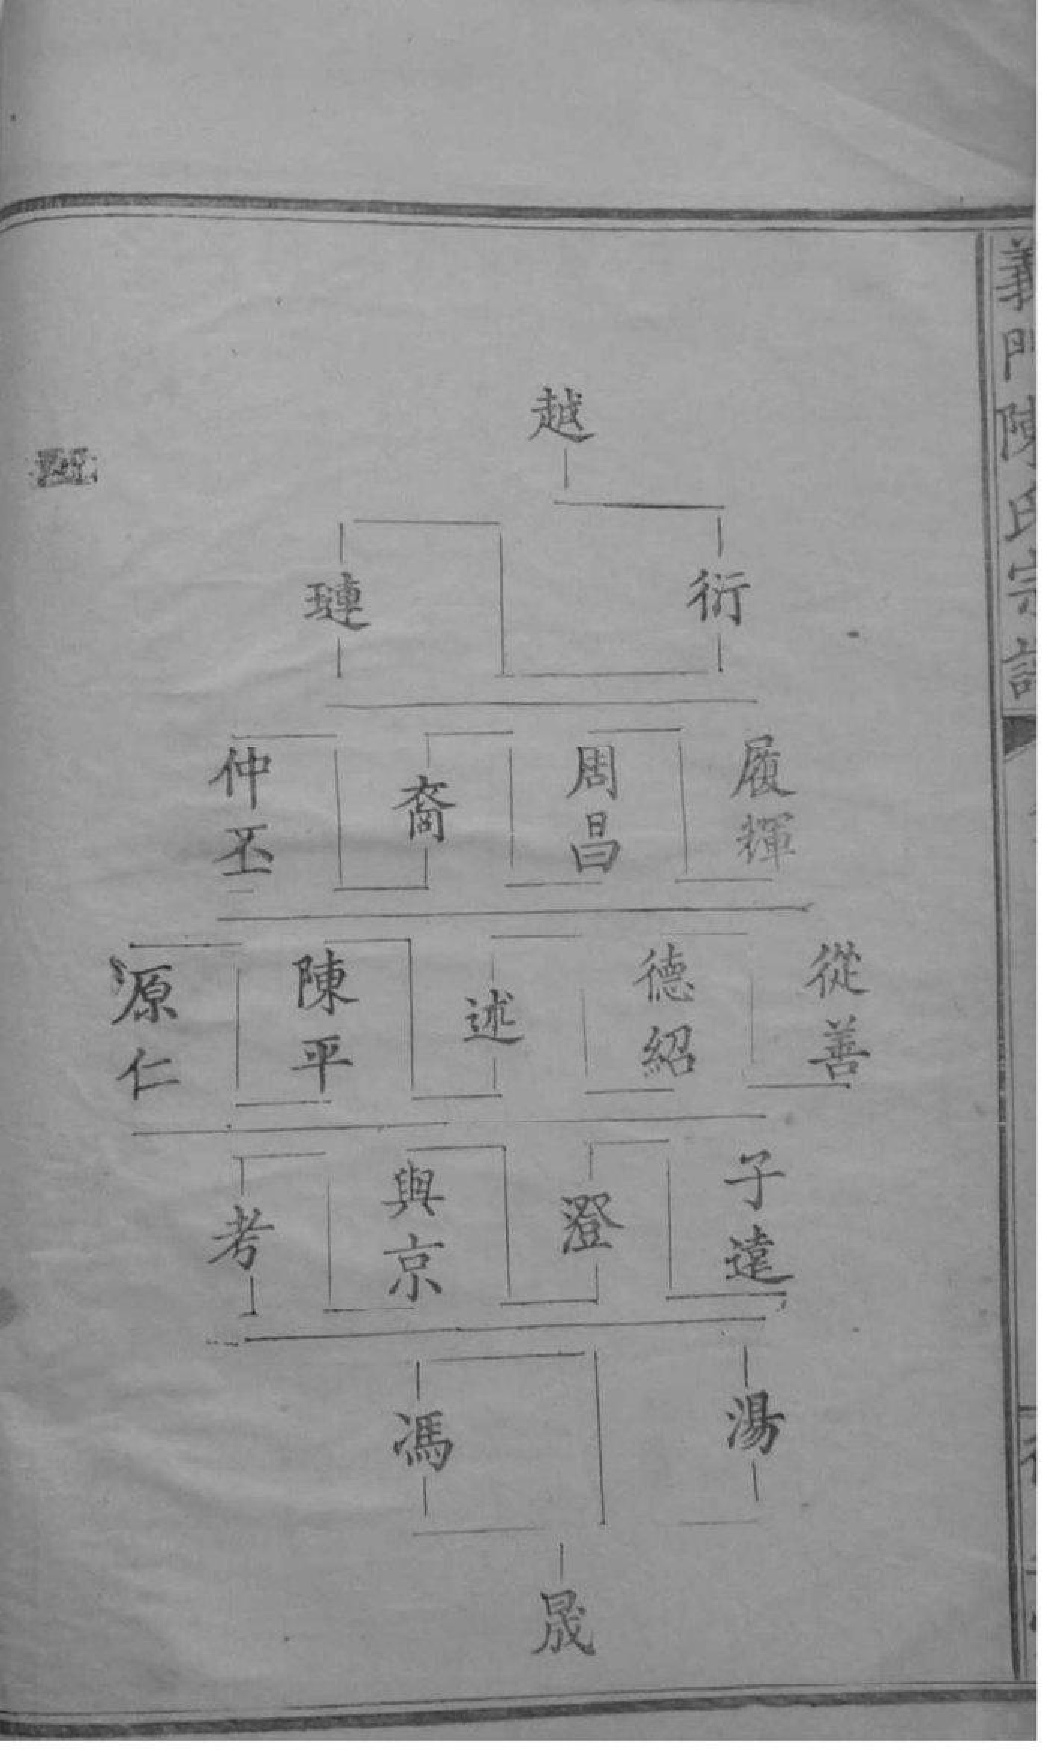 義門陳氏宗譜
越
衍
璉
履輝
周昌
裔
仲丕
從善
德紹
述
陳平
源仁
子遠
澄
興京
考
湯
馮
晟